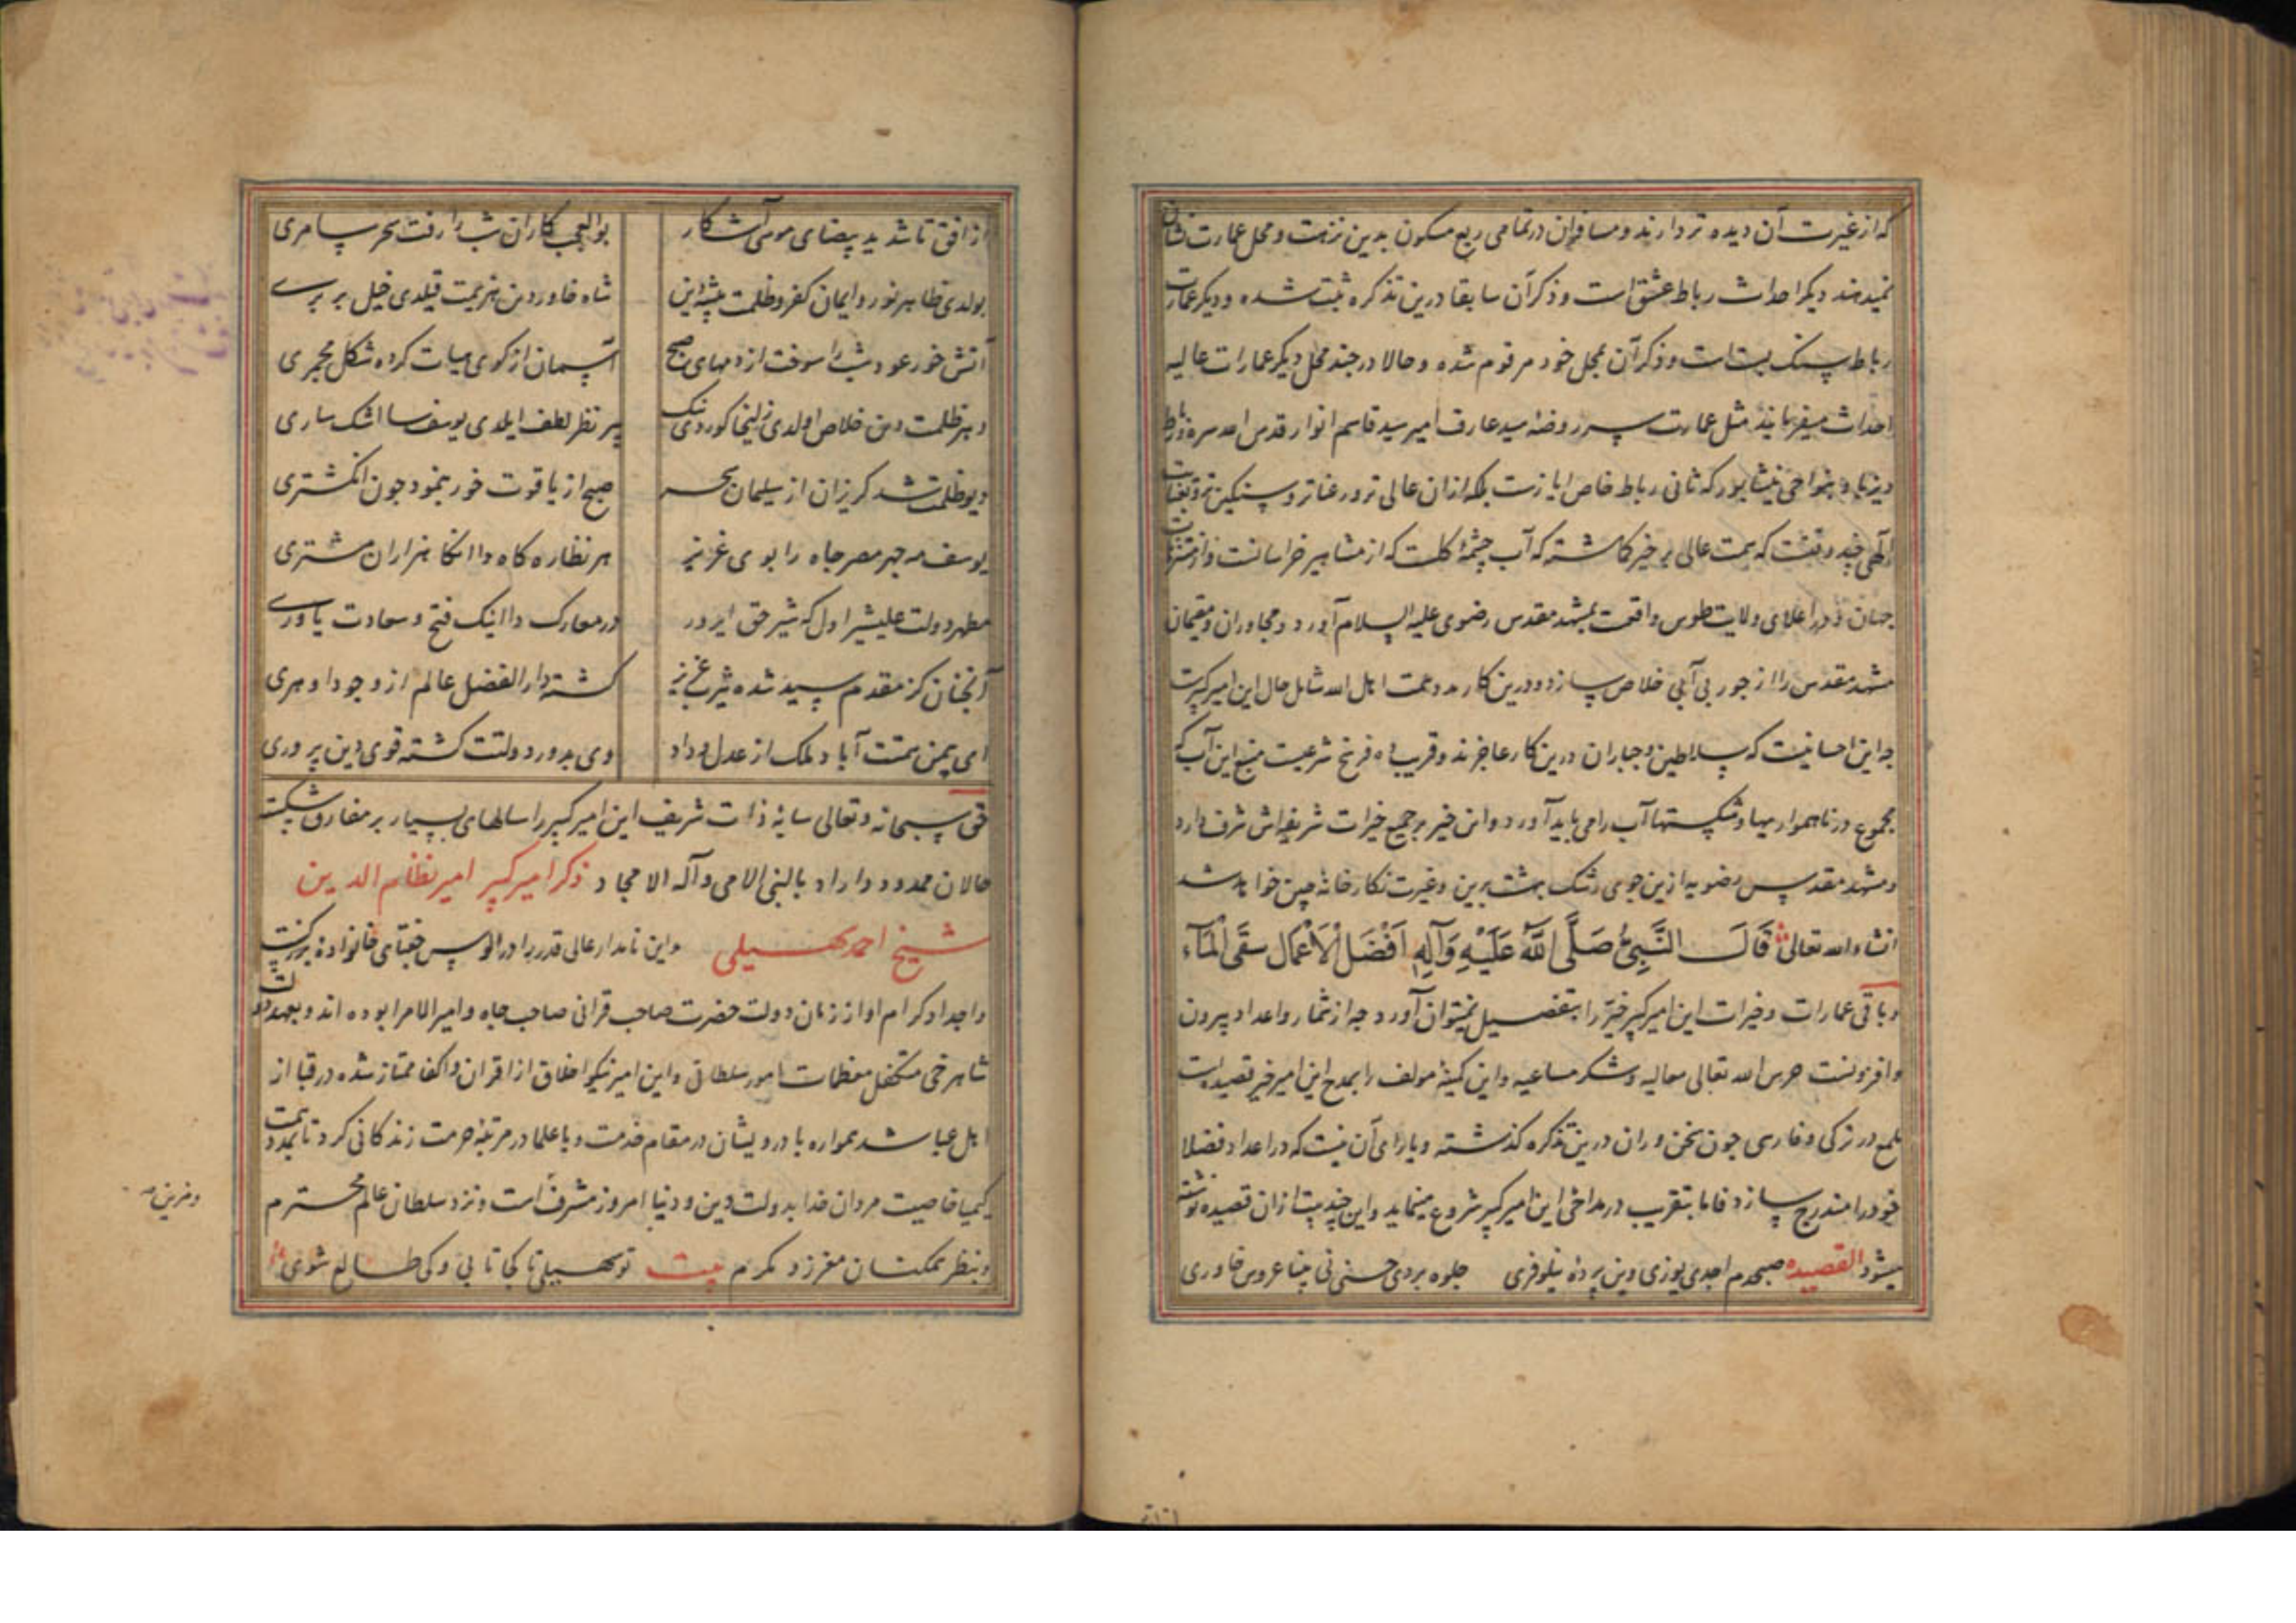 که از غیرت آن دیده تر دارند و مسافران در تمامی ربع مسکون بدین نزهت و محل عمارت نشان
نمیدهند دیگر احداث رباط عشق است و ذکر آن سابقا درین تذکره ثبت شده و دیگر عمارت
رباط سنک بست است و ذکر آن بمحل خود مرقوم شده و حالا در چند محل دیگر عمارات عالیه
احداث میفرمایند مثل عمارت سر روضه سید عارف امیر سید قاسم انوار قدس الله سره و رباط
دیزباد بنواحی نیشابور که ثانی رباط خاص ایازست بلکه از آن عالی تر و رعناتر و سنکین تر و بعنایت
الهی چند وقتست که همت عالی بر خیر کماشته که آب چشمه کلست که از مشاهیر خراسانست و از متنزهات
جهان و در اعلای ولایت طوس واقعست بمشهد مقدس رضوی علیه السلام آورد و مجاوران و مقیمان
مشهد مقدس را از جور بی آبی خلاص سازد و درین کار مدد همت اهل الله شامل حال این امیر کبیرست
چه این احسانیست که سلاطین و جباران درین کار عاجزند و قریب ده فرسخ شرعیست منبع این آب که
مجموع در ناهمواریها و شکستها آب را می باید آورد و این خیر بر جمیع خیرات شریفه اش شرف دارد
و مشهد مقدس رضویه ازین جوی رشک بهشت برین و غیرت نکارخانه چین خواهد شد
انشاء الله تعالی قَالَ النَّبِیُّ صَلَّی اللَّهُ عَلَیْهِ وَآلِهِ اَفْضَلُ الْاَعْمَالِ سَقْیُ الْمَآءِ
و باقی عمارات و خیرات این امیر کبیر خیّر را بتفصیل نمیتوان آورد چه از شمار و اعداد بیرون
و افزونست حرس الله تعالی معالیه و شکر مساعیه و این کمینه مولف را بمدح این امیر خیر قصیده است
ملمع در ترکی و فارسی چون سخن وران درین تذکره کذشته و یارای آن نیست که در اعداد فضلا
خود را مندرج سازد فاما بتقریب در مداحی این امیر کبیر شروع مینماید و این چند بیت از آن قصیده نوشته
میشود القصیده صبحدم اجدی یوزی دین پرده نیلوفری جلوه بردی حسنی نی مینا عروس خاوری
از افق تا شد ید بیضای موسی آشکار بوالعجب کاران شب را رفت سحر سامری
بولدی ظاهر نور و ایمان کفر و ظلمت پیشه دین شاه خاور دن هزیمت قیلدی خیل بربری
آتش خور عود شب را سوخت از دمهای صبح آسمان از کوی میات کرده شکل مجمری
دیر ظلمت دین خلاص اولدی زلیخا کوردنک پیر نظر لطف ایلدی یوسف سا اشک ساری
دیو ظلمت شد کریزان از سلیمان سحر صبح از یاقوت خور بنمود چون انکشتری
یوسف مه چهر مصر جاه را بوی عزیز هر نظاره کاه دا انکا هزاران مشتری
مطهر دولت علیشیر اول که شیر حق ایرور در معارک دا اینک فتح و سعادت یاوری
آنچنان کز مقدم سید شده یثرب عزیز کشته دار الفضل عالم از وجود او هری
ای بیمن همتت آباد ملک از عدل و داد وی بدور دولتت کشته قوی دین پروری
حق سبحانه و تعالی سایه ذات شریف این امیر کبیر را سالهای بسیار بر مفارق شکسته
حالان ممدود داراد بالنبی الامی و آله الامجاد ذکر امیر کبیر امیر نظام الدین
شیخ احمد سهیلی و این نامدار عالی قدر را در الوس جغتای خانواده بزرکیست
و اجداد کرام او از زمان دولت حضرت صاحب قرانی صاحب جاه و امیر الامرا بوده اند و بعهد دولت
شاهرخی متکفل معظمات امور سلطانی و این امیر نیکو اخلاق از اقران و اکفا ممتاز شده در قبا از
اهل عبا شد همواره با درویشان در مقام خدمت و با علما در مرتبه حرمت زندکانی کرد تا بمدد همت
کیمیا خاصیت مردان خدا بدولت دین و دنیا امروز مشرفست و نزد سلطان عالم محترم
و بنظر همکنان معزز و مکرم بیت تو سهیلی تا کجا تابی و کی طالع شوی